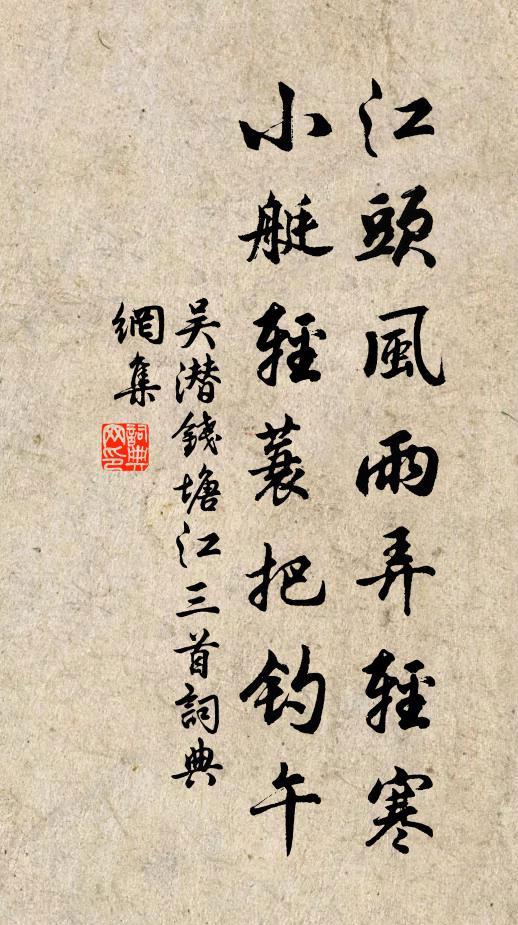 江頭風雨弄輕寒
小艇輕蓑把釣午
吴潜錢塘江三首詞典
網集
詞典网印